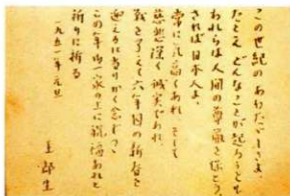 この世紀のあわただしさよ、
たとえどんなことが起ろうとも
われらは人間の尊厳を保とう。
されば日本人よ、
常に気高くあれ そして
慈悲深く誠実であれ
戦を了えて六年目の新春を
迎えるに当りかく念じつつ
この年も一家の上に祝福あれと
祈りに祈る
一九五一年元旦
郎生